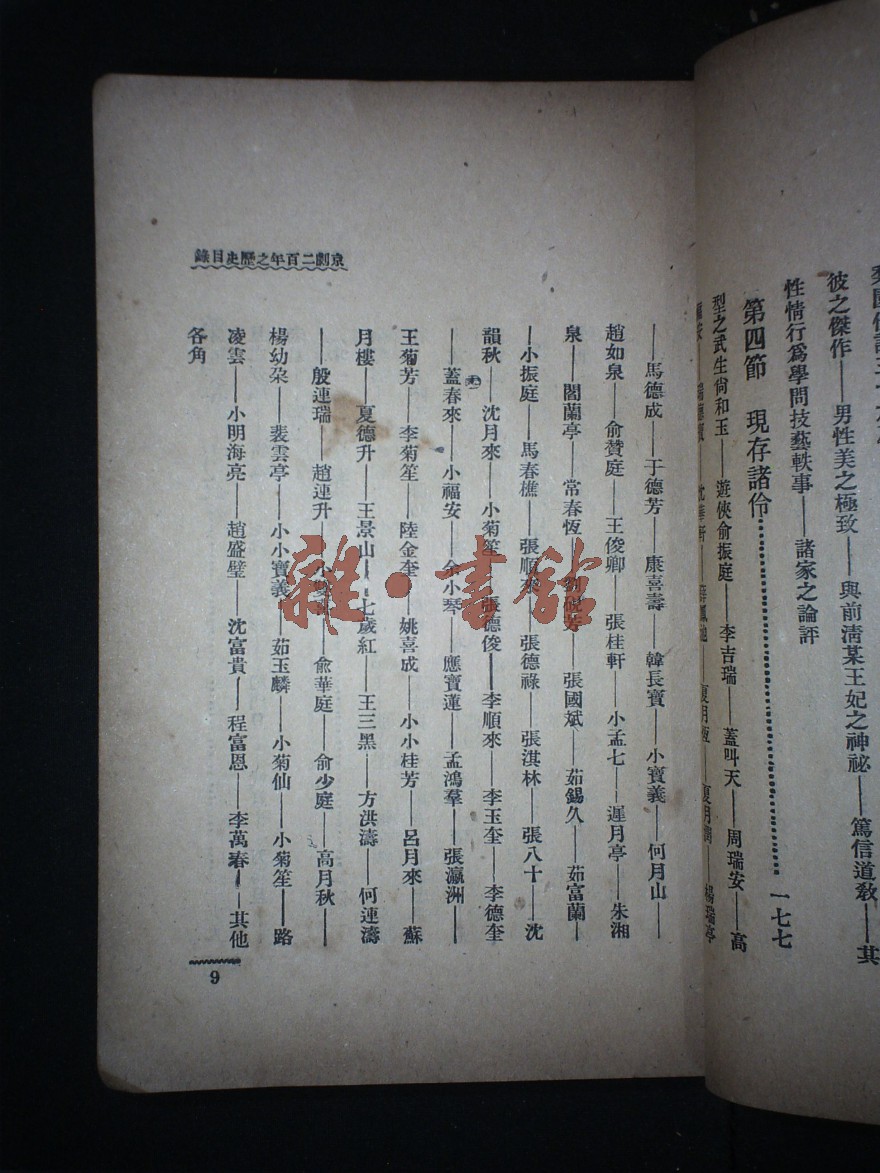 彼之傑作——男性美之極致——與前清某王妃之神祕——篤信道教——其
性情行爲學問技藝軼事——諸家之論評
第四節　現存諸伶……………………一七七
型之武生尙和玉——遊俠俞振庭——李吉瑞——蓋叫天——周瑞安——高
夏月恆——夏月潤——楊瑞亭
——馬德成——于德芳——康喜壽——韓長寶——小寶義——何月山——
趙如泉——俞贊庭——王俊卿——張桂軒——小孟七——遲月亭——朱湘
泉——閻蘭亭——常春恆——張國斌——茹錫久——茹富蘭——
——小振庭——馬春樵——張順來——張德祿——張淇林——張八十——沈
韻秋——沈月來——小菊笙——張德俊——李順來——李玉奎——李德奎
——蓋春來——小福安——余小琴——應寶蓮——孟鴻羣——張瀛洲——
王菊芳——李菊笙——陸金奎——姚喜成——小小桂芳——呂月來——蘇
月樓——夏德升——王景山——七歲紅——王三黑——方洪濤——何連濤
——殷連瑞——趙連升——俞華庭——俞少庭——高月秋——
楊幼朶——裴雲亭——小小寶義——茹玉麟——小菊仙——小菊笙——路
凌雲——小明海亮——趙盛璧——沈富貴——程富恩——李萬春——其他
各角
京劇二百年之歷史目錄
9
雜·書館